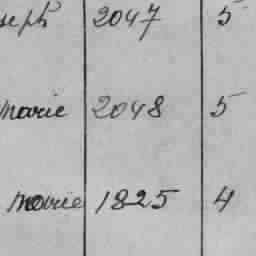 seph 2047 5
marie 2048 5
marie 1825 4